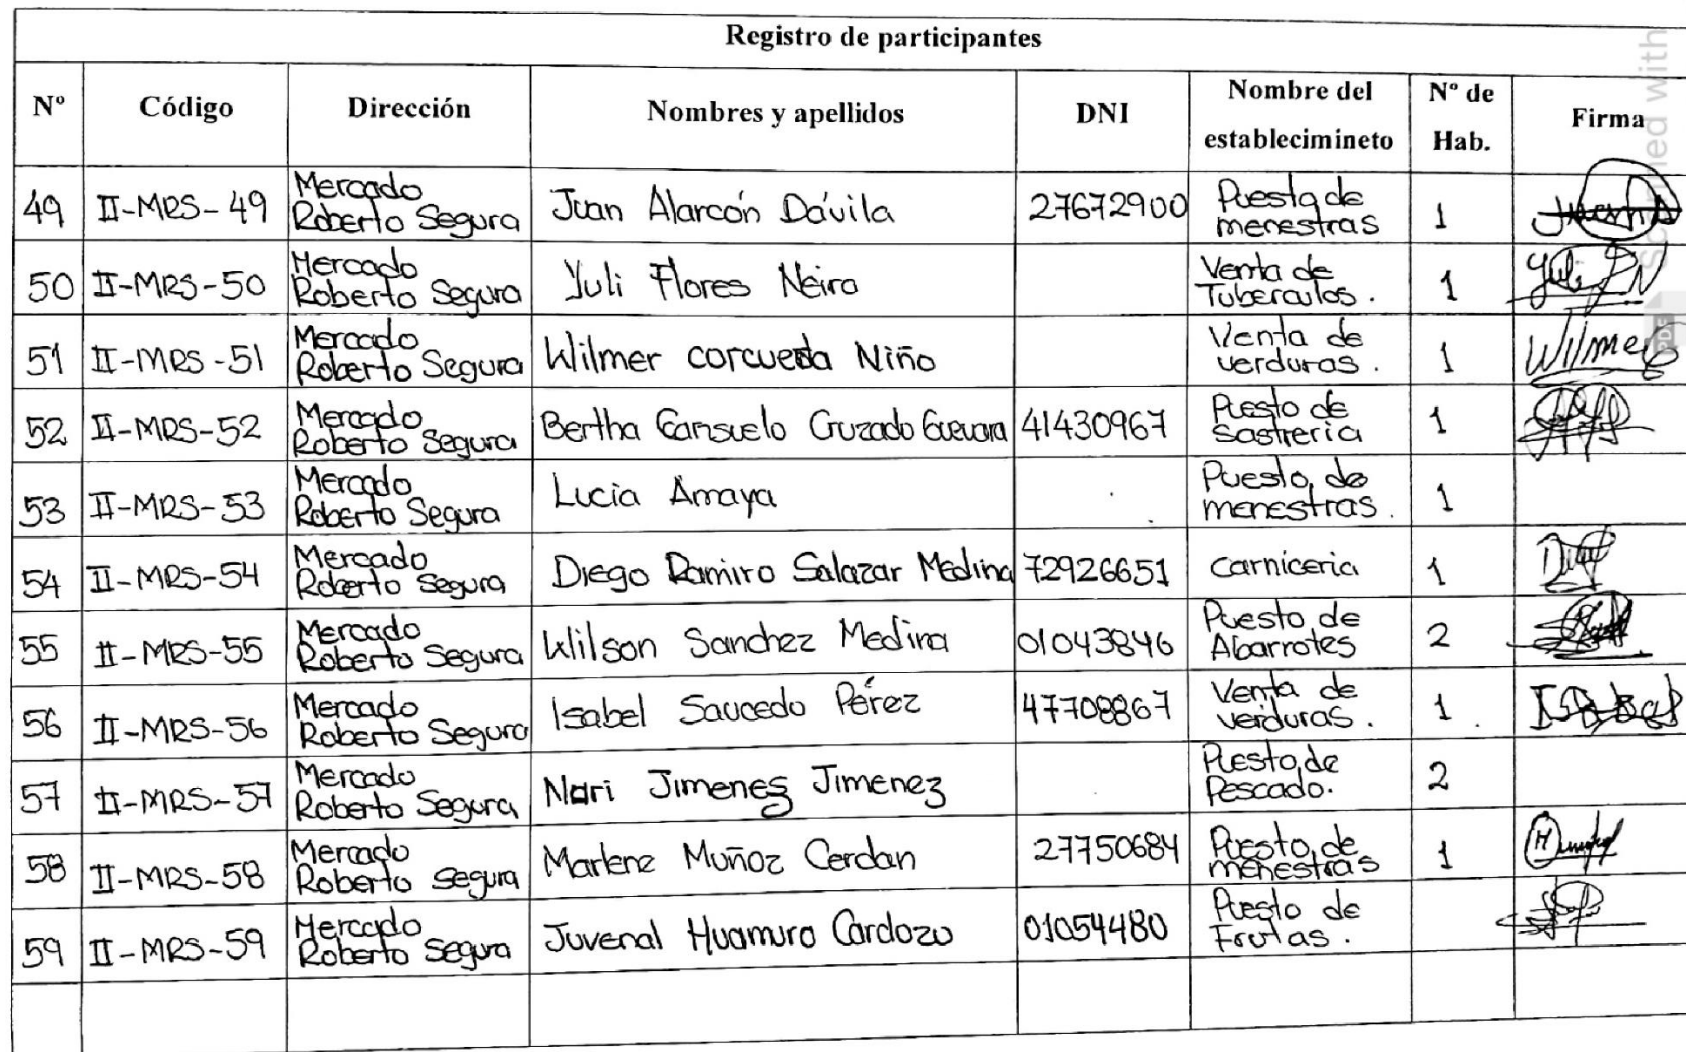 Registro de participantes
Nº Código Dirección Nombres y apellidos DNI Nombre del establecimineto Nº de Hab. Firma
49 II-MRS-49 Mercado Roberto Segura Juan Alarcón Dávila 27672900 Puesto de menestras 1
50 II-MRS-50 Mercado Roberto Segura Yuli Flores Neira Venta de Tuberculos. 1 Yuli FN
51 II-MRS-51 Mercado Roberto Segura Wilmer Niño Venta de verduras. 1 Wilmer
52 II-MRS-52 Mercado Roberto Segura Bertha Consuelo Cruzado Guevara 41430967 Puesto de Sastreria 1
53 II-MRS-53 Mercado Roberto Segura Lucia Amaya Puesto de menestras. 1
54 II-MRS-54 Mercado Roberto Segura Diego Ramiro Salazar Medina 72926651 Carniceria 1
55 II-MRS-55 Mercado Roberto Segura Wilson Sanchez Medina 01043846 Puesto de Abarrotes 2
56 II-MRS-56 Mercado Roberto Segura Isabel Saucedo Pérez 47708867 Venta de verduras. 1. Isabel
57 II-MRS-57 Mercado Roberto Segura Nari Jimenez Jimenez Puesto de Pescado. 2
58 II-MRS-58 Mercado Roberto Segura Marlene Muñoz Cerdan 27750684 Puesto de menestras 1
59 II-MRS-59 Mercado Roberto Segura Juvenal Huamuro Cardozo 01054480 Puesto de Frutas.
Scanned with